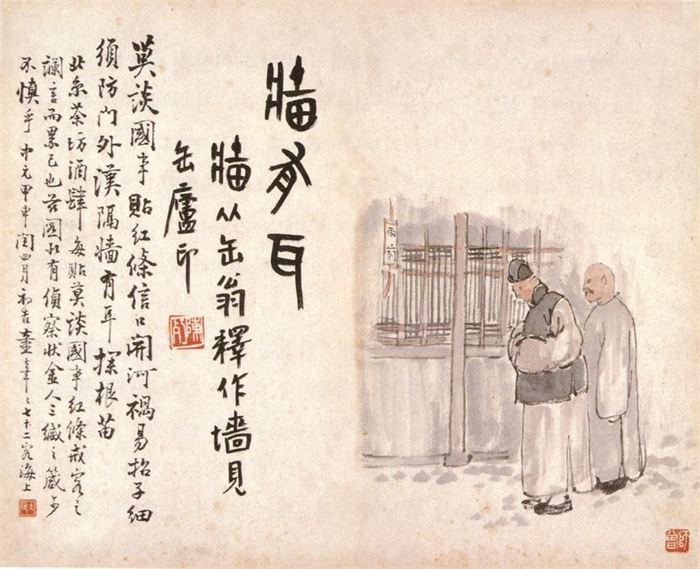 牆有耳
牆从缶翁釋作墻見
缶廬印
莫談國事貼紅條信口開河禍易招子細
須防門外漢隔墻有耳探根苗
北京茶坊酒肆每貼莫談國事紅條戒客之
讕言而累己也茲圖狀有偵察狀金人三緘之箴可
不慎乎 中元甲申閏四月初吉童 七十二客海上
雨前
師曾